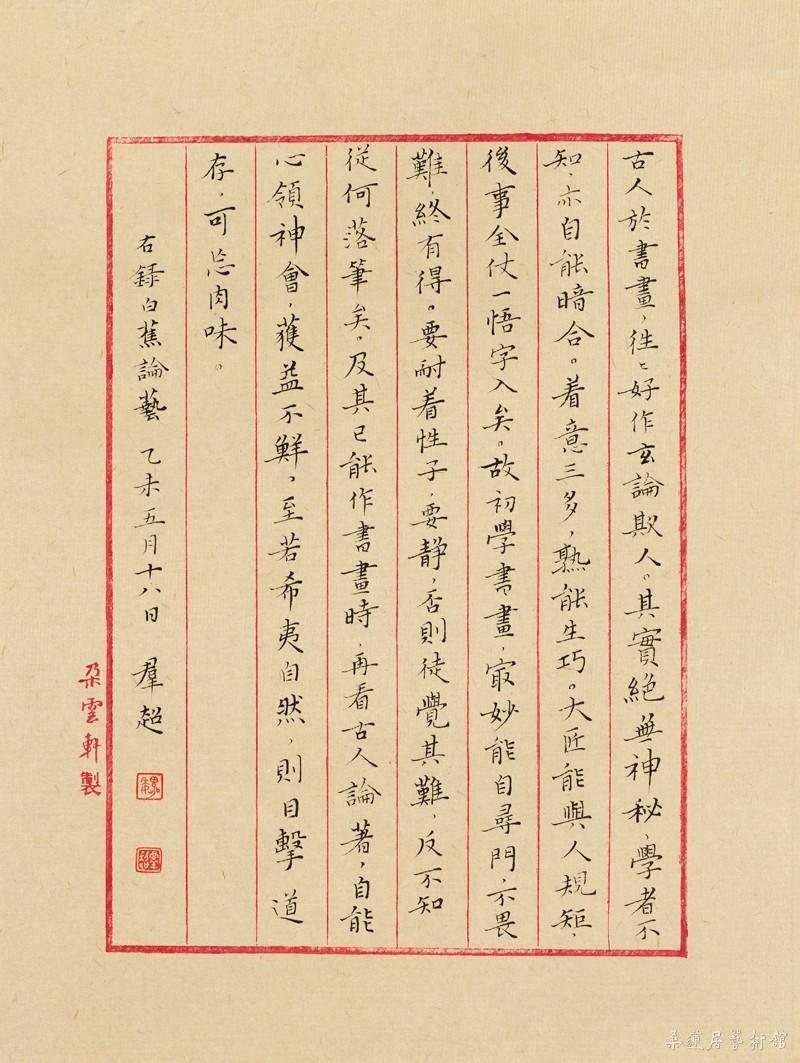 古人於書畫，往〻好作玄論欺人。其實絕無神秘，學者不
知，亦自能暗合。着意三多，熟能生巧。大匠能與人規矩，
後事全仗一悟字入矣。故初學書畫，寂妙能自尋門，不畏
難，終有得。要耐着性子，要靜，否則徒覺其難，反不知
從何落筆矣。及其已能作書畫時，再看古人論著，自能
心領神會，獲益不鮮。至若希夷自然，則目擊道
存，可忘肉味。
右錄白蕉論藝 乙未五月十八日 羣超
朵雲軒製
桑蓮居藝術館